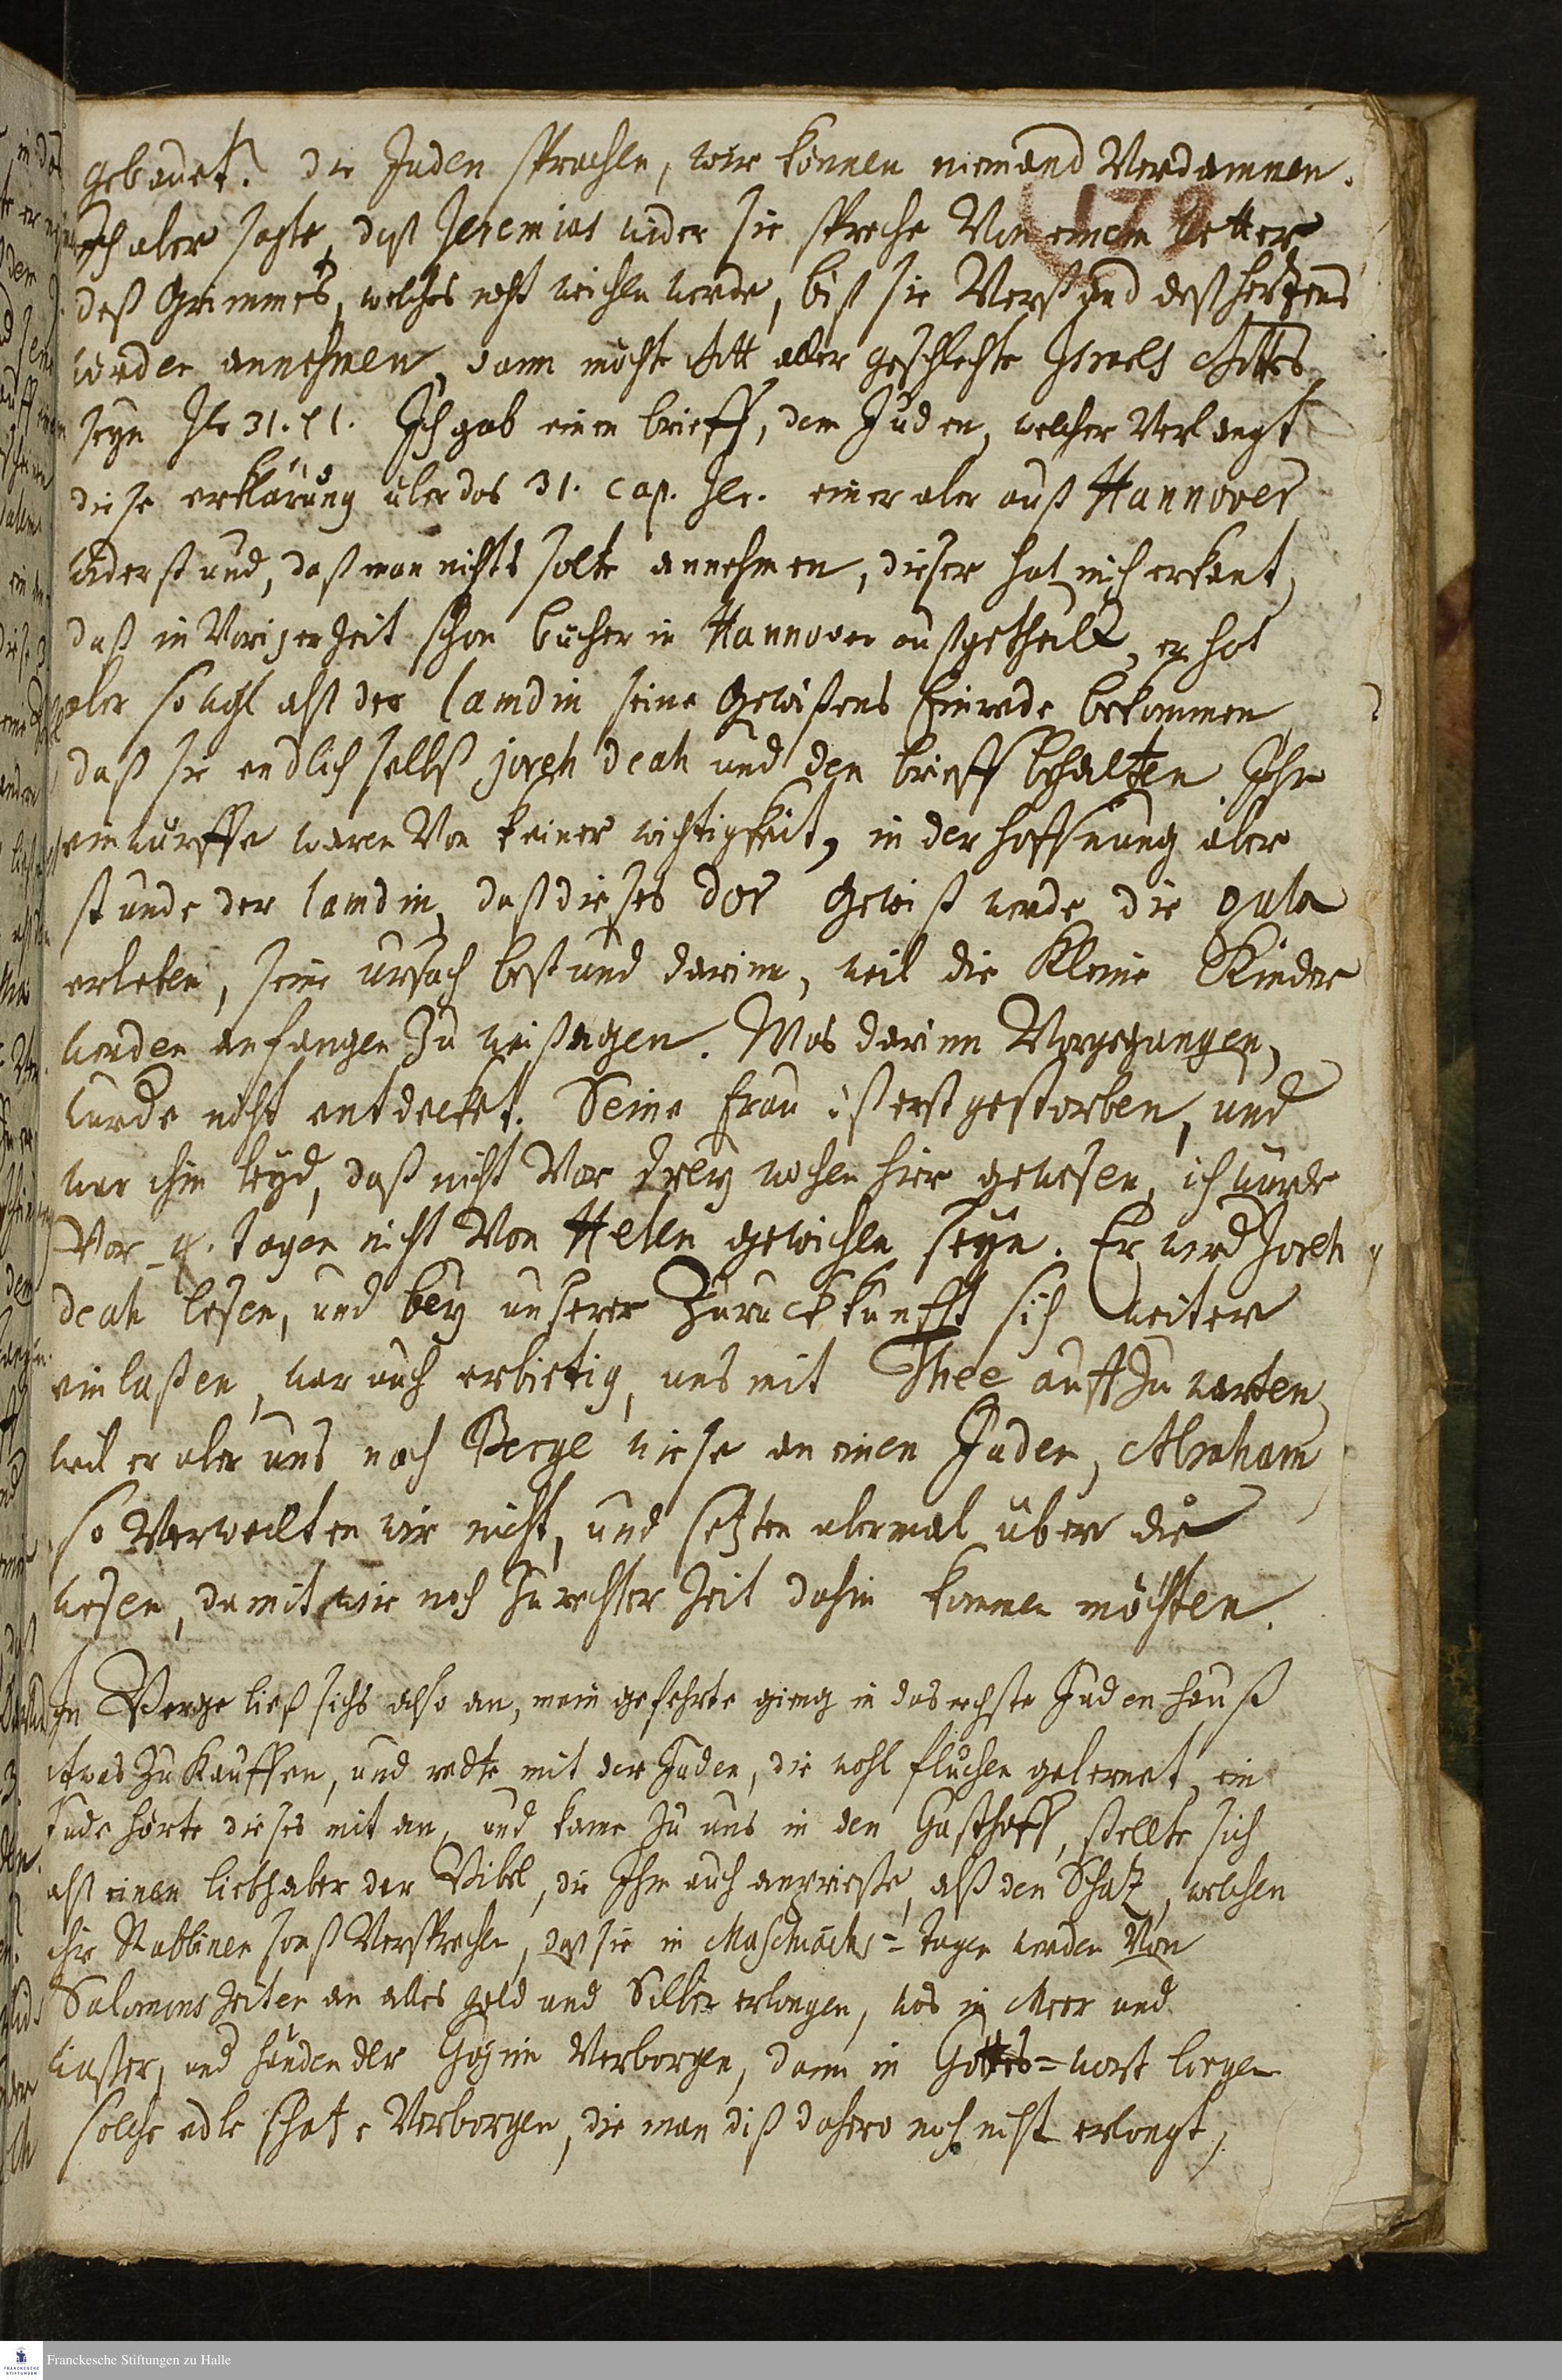 gebauet. die Juden sprachen, wir können niemand Verdammen.
Ich aber sagte, daß Jeremias wider sie spreche Von einem Wetter
179
deß Grimmes, welches nicht weichen werde, biß sie Verstand deß hertzens
würden annehmen, dann möchte Gott aller geschlechte Israels Gottes
seyn Jer 31. v1. Ich gab einen brieff, dem Juden, welcher Verlangt
diese erklärung über das 31. cap. Jer. einer aber auß Hannover
widerstund, daß man nichts solte annehmen, dieser hat mich erkant,
daß in Voriger Zeit schon bücher in Hannover außgetheilt, er hat
aber so wohl alß der lamdin seine Gewißens Einrede bekommen
daß sie endlich selbst joreh deah und den brieff behalten. Ihr
einwürffe waren Von keiner wichtigkeit, in der hoffnung aber
stunde der lamdin, daß dieses dor gewiß werde die gula
erleben, seine ursach bestund darinn, weil die Kleine Kinder
werden anfangen zu weißagen. Was darinn Vorgegangen,
wurde nicht entdecket. Seine frau ist erst gestorben, und
war ihm leyd, daß nicht Vor drey wochen hier gewesen, ich würde
Vor 4. tagen nicht Von gewichen seyn. Er wird Joreh
deah lesen, und bey unserer Zuruckkunfft sich weiter
einlaßen, war auch erbietig, uns mit Thee auffzuwarten,
weil er aber uns nach Berge wiese an einen Juden, Abraham
so Verweilten wir nicht, und setzten abermal über die
weser, damit wir noch zu rechter Zeit dahin kommen möchten.
In Berge ließ sichs also an, mein gefehrte gieng in das erste Juden hauß
etwas zu Kauffen, und redte mit der Juden, die wohl fluchen gelernet, ein
Jude hörte dieses mit an, und kame zu uns in den Gasthoff, stellte sich
alß einen liebhaber der Bibel, die Ihm auch anprieße, alß den Schatz, welchen
ihre Rabbinen sonst Versprechen, daß sie in Maschiachs-tagen werden Von
Salomons Zeiten an alles gold und Silber erlangen, was in Meer und
waßer, und händen der Gojim Verborgen, dann in Gottes-wort liegen
solche edle schätze Verborgen, die man biß dahero noch nicht erlangt,
Franckesche Stiftungen zu Halle